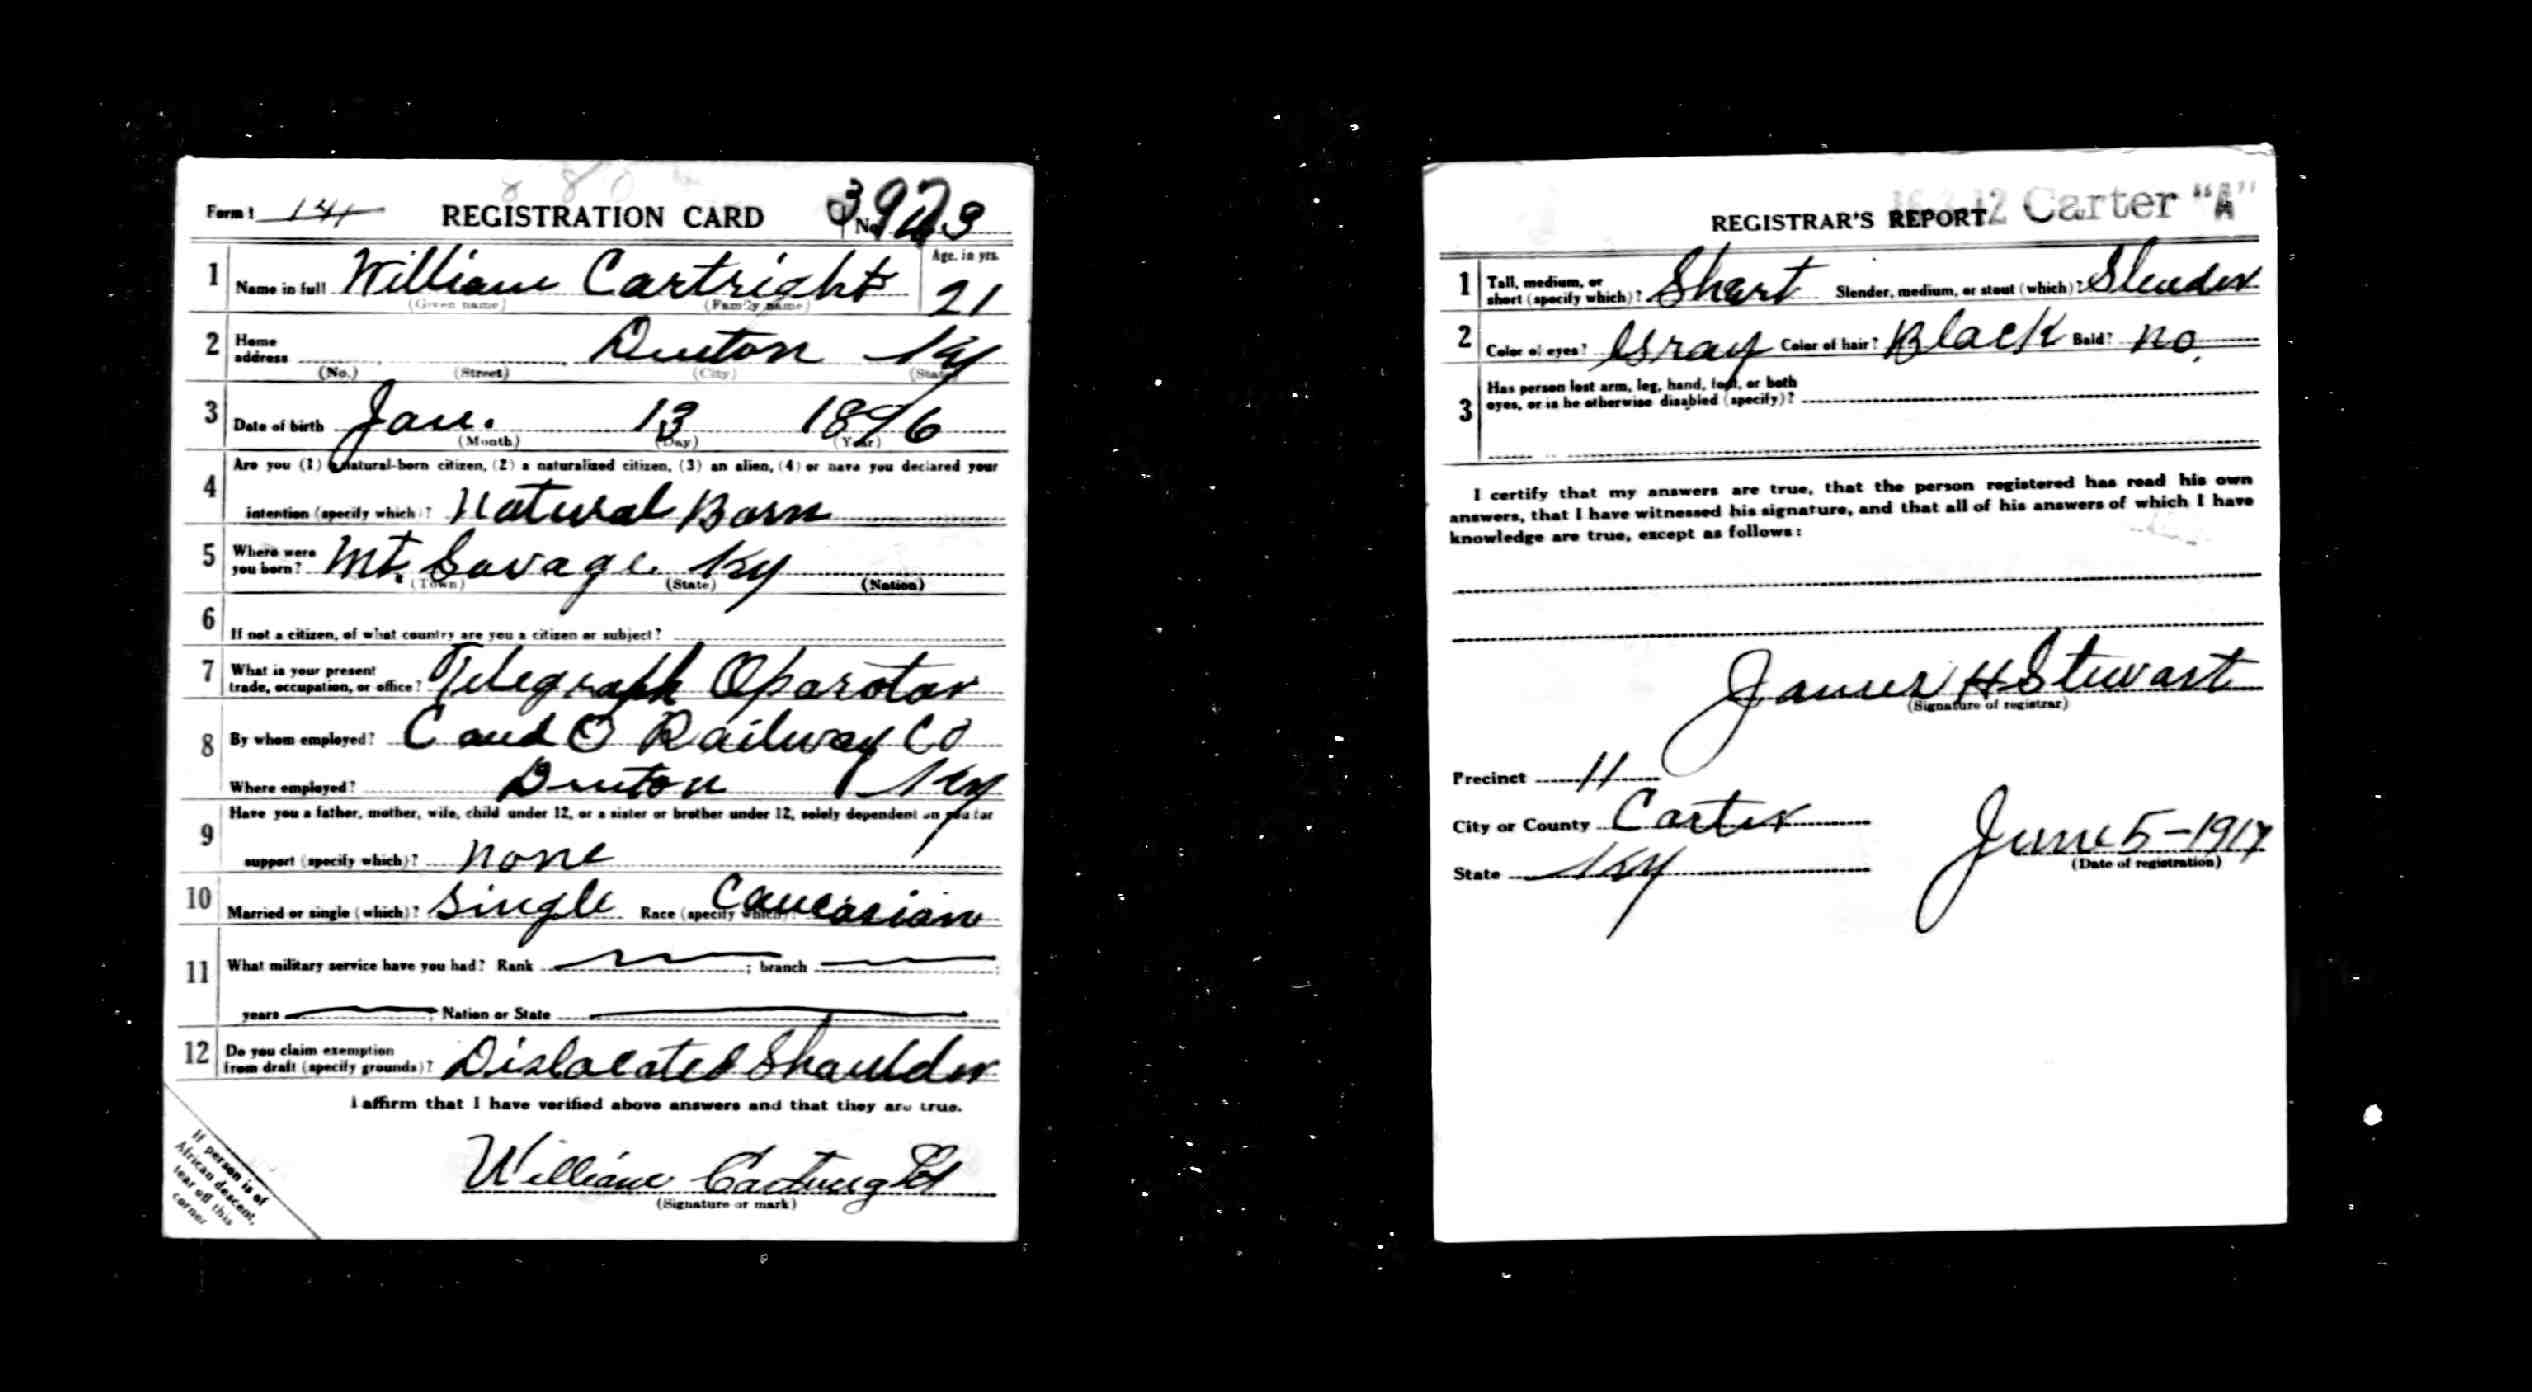 Form 1 141 REGISTRATION CARD No.
Age, in yrs.
1 Name in full William Cartright 21
(Given name) (Family name)
2 Home address Denton Ky
(No.) (Street) (City) (State)
3 Date of birth Jan. 13 1896
(Month) (Day) (Year)
4 Are you (1) a natural-born citizen, (2) a naturalized citizen, (3) an alien, (4) or have you declared your
intention (specify which)? Natural Born
5 Where were you born? Mt. Savage Ky
(Town) (State) (Nation)
6 If not a citizen, of what country are you a citizen or subject?
7 What is your present trade, occupation, or office? Telegraph Oparotor
8 By whom employed? C and O Railway Co
Where employed? Denton Ky
9 Have you a father, mother, wife, child under 12, or a sister or brother under 12, solely dependent on you for
support (specify which)? none
10 Married or single (which)? Single Race (specify which)? Caucasian
11 What military service have you had? Rank ; branch ;
years ; Nation or State
12 Do you claim exemption from draft (specify grounds)? Dislocated Shoulder
I affirm that I have verified above answers and that they are true.
William Cartwright
(Signature or mark)
If person is of
African descent,
tear off this
corner
Carter "A"
REGISTRAR'S REPORT
1 Tall, medium, or short (specify which)? Short Slender, medium, or stout (which)? Slender
2 Color of eyes? Gray Color of hair? Black Bald? no.
3 Has person lost arm, leg, hand, foot, or both
eyes, or is he otherwise disabled (specify)?
I certify that my answers are true, that the person registered has read his own
answers, that I have witnessed his signature, and that all of his answers of which I have
knowledge are true, except as follows:
James H Stewart
(Signature of registrar)
Precinct 11
City or County Carter
June 5-1917
State Ky
(Date of registration)